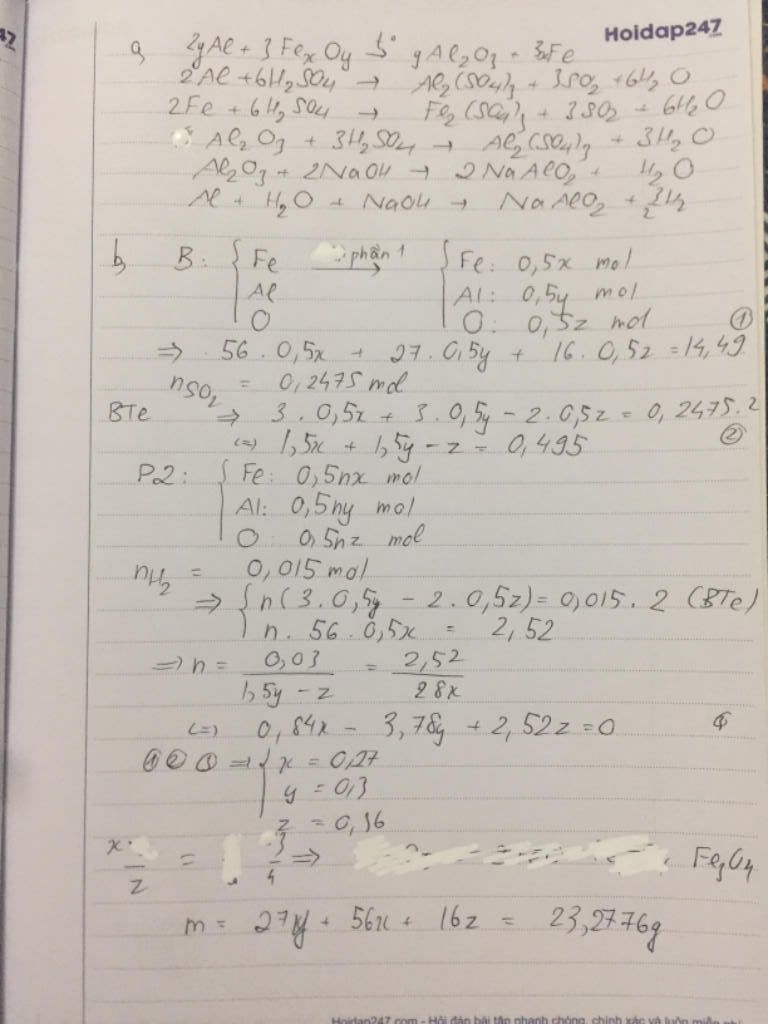 47
Hoidap247
a, 2yAl + 3FexOy t° yAl2O3 + 3xFe
2Al + 6H2SO4 → Al2(SO4)3 + 3SO2 + 6H2O
2Fe + 6H2SO4 → Fe2(SO4)3 + 3SO2 + 6H2O
Al2O3 + 3H2SO4 → Al2(SO4)3 + 3H2O
Al2O3 + 2NaOH → 2NaAlO2 + H2O
Al + H2O + NaOH → NaAlO2 + 3/2H2
b, B: { Fe phần 1 → { Fe: 0,5x mol
Al Al: 0,5y mol
O O: 0,5z mol
⇒ 56 . 0,5x + 27 . 0,5y + 16 . 0,5z = 14,49 ①
nSO2 = 0,2475 mol
BTe ⇒ 3 . 0,5x + 3 . 0,5y - 2 . 0,5z = 0,2475 . 2
(=) 1,5x + 1,5y - z = 0,495 ②
P2: { Fe: 0,5nx mol
Al: 0,5ny mol
O: 0,5nz mol
nH2 = 0,015 mol
⇒ { n(3 . 0,5y - 2 . 0,5z) = 0,015 . 2 (BTe)
n . 56 . 0,5x = 2,52
⇒ n = 0,03/(1,5y - z) = 2,52/28x
(=) 0,84x - 3,78y + 2,52z = 0
① ② ③ ⇒ { x = 0,27
y = 0,3
z = 0,36
x/z = 3/4 ⇒ Fe3O4
m = 27y + 56x + 16z = 23,2776g
Hoidap247.com - Hỏi đáp bài tập nhanh chóng, chính xác và luôn miễn phí